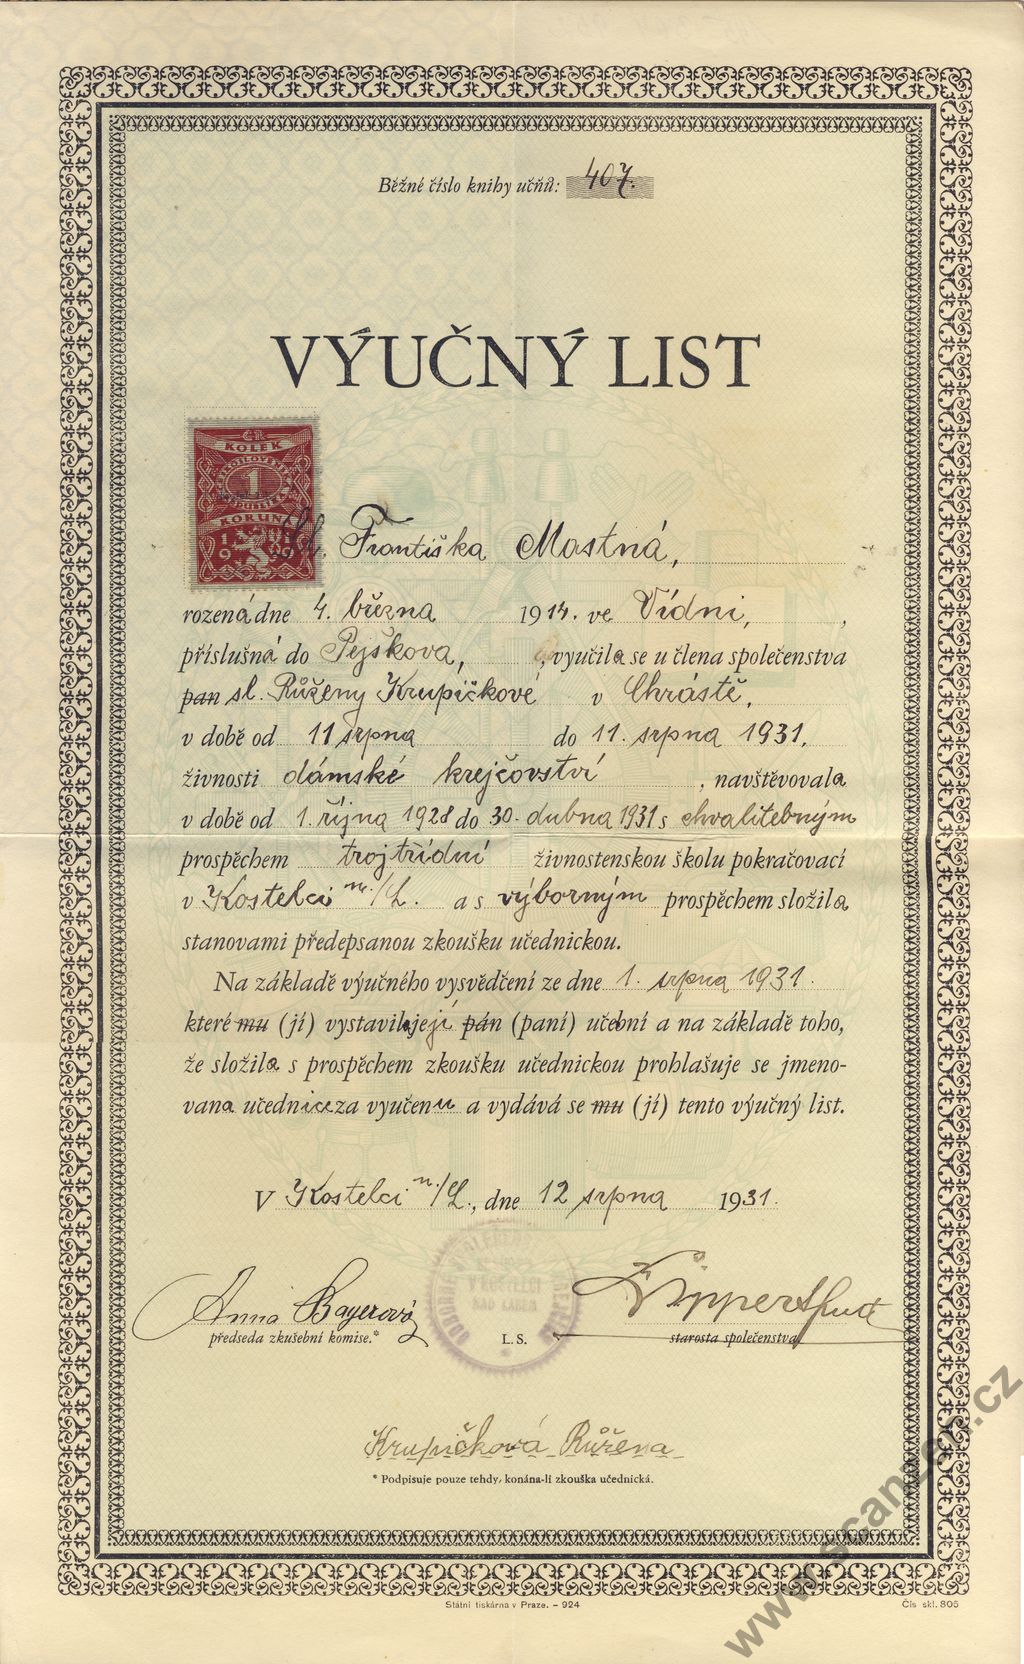 Běžné číslo knihy učňů: 407.
VÝUČNÝ LIST
ČR
KOLEK
1
KORUNA
Sl. Františka Mostná,
rozená dne 4. března 1914. ve Vídni,
příslušná do Pejškova, vyučila se u člena společenstva
pan sl. Růženy Krupičkové v Chrástě,
v době od 11 srpna do 11. srpna 1931,
živnosti dámské krejčovství, navštěvovala
v době od 1. října 1928 do 30. dubna 1931 s chvalitebným
prospěchem trojtřídní živnostenskou školu pokračovací
v Kostelci n./L. a s výborným prospěchem složila
stanovami předepsanou zkoušku učednickou.
Na základě výučného vysvědčení ze dne 1. srpna 1931.
které mu (jí) vystavila její pán (paní) učební a na základě toho,
že složila s prospěchem zkoušku učednickou prohlašuje se jmeno-
vaná učednice za vyučenu a vydává se mu (jí) tento výučný list.
V Kostelci n./L., dne 12 srpna 1931.
Anna Bayerová
předseda zkušební komise.*
V KOSTELCI
NAD LABEM
L. S.
starosta společenstva.
Krupičková Růžena
* Podpisuje pouze tehdy, konána-li zkouška učednická.
Státní tiskárna v Praze. – 924
Čís skl. 805
www.scanzen.cz